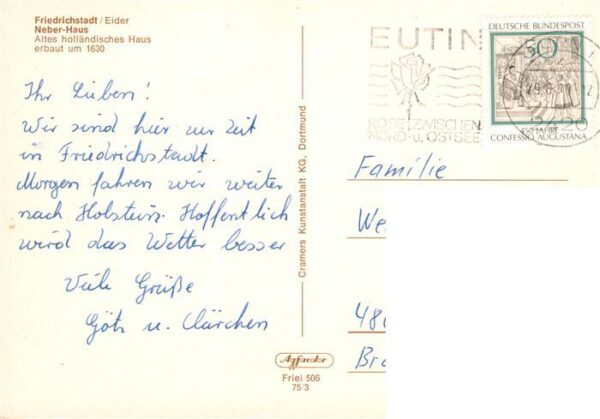 Friedrichstadt/Eider
Neber-Haus
Altes holländisches Haus
erbaut um 1630
Ihr Lieben!
Wir sind hier zur Zeit
in Friedrichstadt.
Morgen fahren wir weiter
nach Holstein. Hoffentlich
wird das Wetter besser
Viele Grüße
Götz u. Clärchen
Cramers Kunstanstalt KG, Dortmund
Agfacolor
Friei 506
75/3
EUTIN
ROSE ZWISCHEN
NORD- U. OSTSEE
DEUTSCHE BUNDESPOST
50
450 JAHRE
CONFESSIO AUGUSTANA
2420
Familie
We
480
Bra